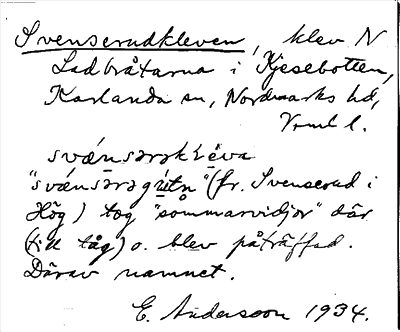 Svenserudkleven, klev N
Ladbråtarna i Kjesebotten,
Karlanda sn, Nordmarks hd,
Vrml l.
svǽnsərəkléva
"svǽnsərəgútn" (fr. Svenserud i
Hög) tog "sommarvidjor" där
(till tåg) o. blev påträffad.
Därav namnet.
E. Andersson 1934.